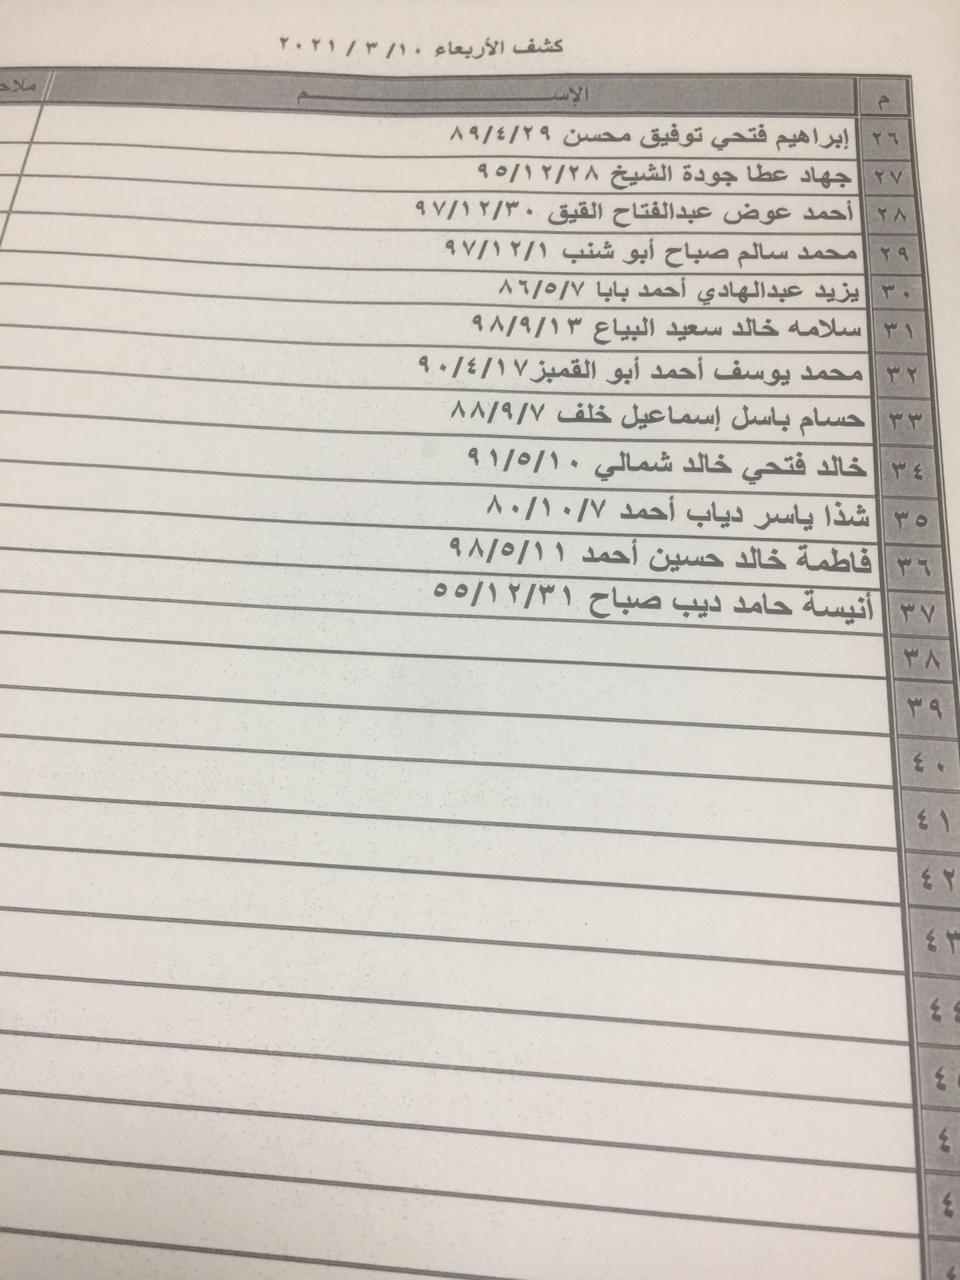 كشف الأربعاء ١٠/ ٣ / ٢٠٢١
م الإســـــــــــــم
٢٦ إبراهيم فتحي توفيق محسن ٨٩/٤/٢٩
٢٧ جهاد عطا جودة الشيخ ٩٥/١٢/٢٨
٢٨ أحمد عوض عبدالفتاح القيق ٩٧/١٢/٣٠
٢٩ محمد سالم صباح أبو شنب ٩٧/١٢/١
٣٠ يزيد عبدالهادي أحمد بابا ٨٦/٥/٧
٣١ سلامه خالد سعيد البياع ٩٨/٩/١٣
٣٢ محمد يوسف أحمد أبو القمبز٩٠/٤/١٧
٣٣ حسام باسل إسماعيل خلف ٨٨/٩/٧
٣٤ خالد فتحي خالد شمالي ٩١/٥/١٠
٣٥ شذا ياسر دياب أحمد ٨٠/١٠/٧
٣٦ فاطمة خالد حسين أحمد ٩٨/٥/١١
٣٧ أنيسة حامد ديب صباح ٥٥/١٢/٣١
٣٨
٣٩
٤٠
٤١
٤٢
٤٣